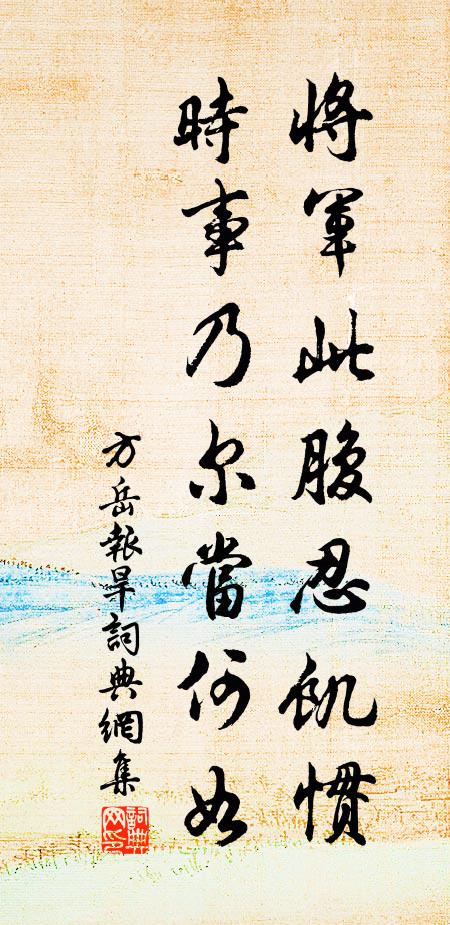 將軍此腹忍飢慣
時事乃尔當何如
方岳報旱詞典網集
詞典网印